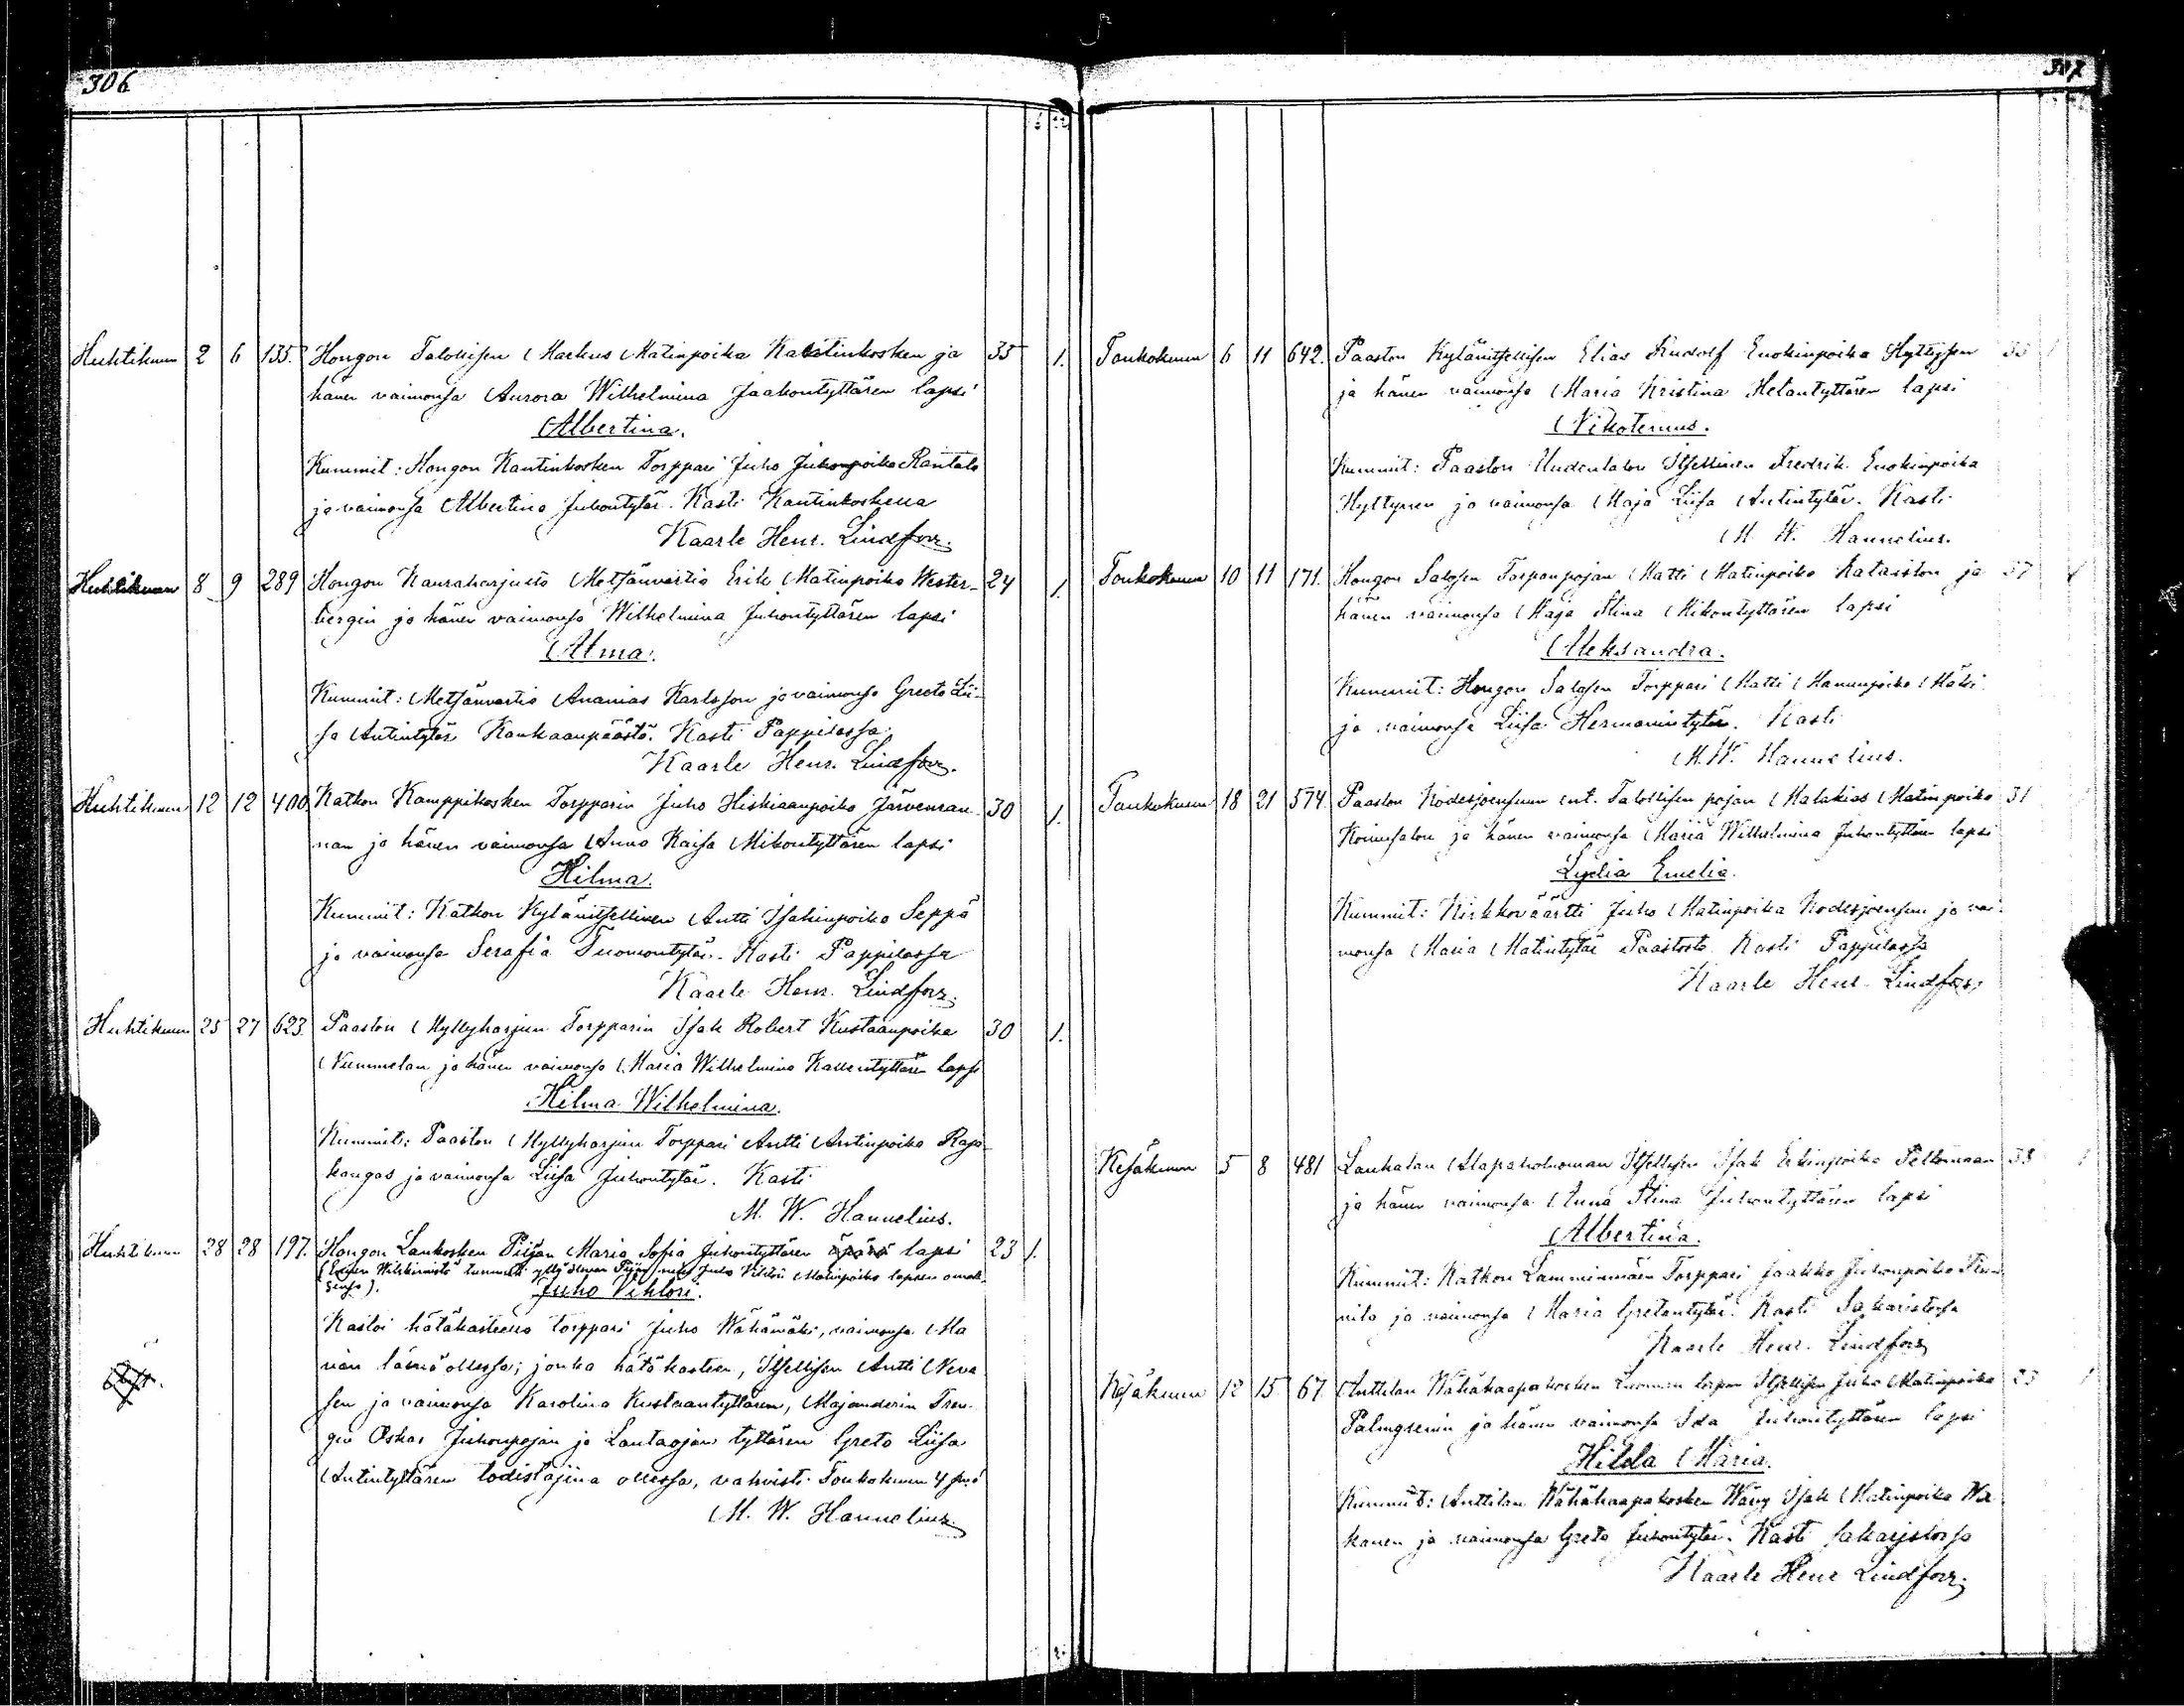 306
Huhtikuun 2 6 135. Hongon Talollisen Markus Matinpoika Kantinkosken ja 35 1.
hänen vaimonsa Aurora Wilhelmina Jaakontyttären lapsi
Albertina.
Kummit: Hongon Kantinkosken Torppari Juho Juhonpoika Rantala
ja vaimonsa Albertina Juhontytär. Kasti Kantinkoskella
Kaarle Henr. Lindfors.
Huhtikuun 8 9 289 Hongon Kauraharjusta Metsänvartia Erik Matinpoika Wester- 24 1.
bergin ja hänen vaimonsa Wilhelmina Juhontyttären lapsi
Alma.
Kummit: Metsänvartia Ananias Karlsson ja vaimonsa Greeta Lii-
sa Antintytär Kankaanpäästä. Kasti Pappilassa.
Kaarle Henr. Lindfors.
Huhtikuun 12 12 400 Katkon Kamppikosken Torpparin Juho Hiskiaanpoika Järvenran- 30 1.
nan ja hänen vaimonsa Anna Kaisa Mikontyttären lapsi
Hilma.
Kummit: Katkon Kylänitsellinen Antti Isakinpoika Seppä
ja vaimonsa Serafia Tuomontytär. Kasti Pappilassa
Kaarle Henr. Lindfors.
Huhtikuun 25 27 623. Paaston Myllyharjun Torpparin Isak Robert Kustaanpoika 30 1.
Nummelan ja hänen vaimonsa Maria Wilhelmina Kallentyttären lapsi
Hilma Wilhelmina.
Kummit: Paaston Myllyharjun Torppari Antti Antinpoika Raja-
kangas ja vaimonsa Liisa Juhontytär. Kasti
M. W. Hannelius.
Huhtikuun 28 28 197. Hongon Lankosken Piijan Maria Sofia Juhontyttären äpärä lapsi 23 1.
tunnusti Juho Vihtori Matinpoika lapsen omak-
sensa).
Juho Vihtori.
Kastoi hätäkasteena torppari Juho Wähämäki, vaimonsa Ma
rian läsnä ollessa; jonka hätäkasteen, Itsellisen Antti Neva
sen ja vaimonsa Karolina Kustaantyttären, Majanderin Tren-
gin Oskar Juhonpojan ja Lautaojan tyttären Greta Liisa
Antintyttären todistajina ollessa, vahvisti Toukokuun 4 pnä
M. W. Hannelius.
307
Toukokuun 6 11 642. Paaston Kylänitsellisen Elias Rudolf Enokinpoika Hyttysen 35
ja hänen vaimonsa Maria Kristina Metantyttären lapsi
Nikotemus.
Kummit: Paaston Uudentalon Itsellinen Fredrik Enokinpoika
Hyttynen ja vaimonsa Maja Liisa Antintytär. Kasti
M. W. Hannelius.
Toukokuun 10 11 171. Hongon Salosen Torpanpojan Matti Matinpoika Kataiston ja 37
hänen vaimonsa Maja Stina Mikontyttären lapsi
Aleksandra.
Kummit: Hongon Salosen Torppari Matti Manunpoika Mäki
ja vaimonsa Liisa Hermannintytär. Kasti
M. W. Hannelius.
Toukokuun 18 21 574 Paaston Kodesjoensuun ent. Talollisen pojan Malakias Matinpoika 31
Koivusalon ja hänen vaimonsa Maria Wilhelmina Juhontyttären lapsi
Lydia Emelia.
Kummit: Kirkkoväärtti Juho Matinpoika Kodesjoensuu ja vai-
monsa Maria Matintytär Paastosta. Kasti Pappilassa
Kaarle Henr. Lindfors.
Kesäkuun 5 8 481 Lauhalan Itsellisen Isak Erkinpoika Peltomaan 38
ja hänen vaimonsa Anna Stina Juhontyttären lapsi
Albertina.
Kummit: Katkon Lamminmäen Torppari Jaakko Juhonpoika
nila ja vaimonsa Maria Gretantytär. Kasti Sakaristossa
Kaarle Henr. Lindfors
Kesäkuun 12 15 67 Anttilan Wähähaapakosken Luoman torpan Itsellisen Juho Matinpoika 23
Palmgrenin ja hänen vaimonsa Ida Juhontyttären lapsi
Hilda Maria.
Kummit: Anttilan Wähähaapakosken Wävy Isak Matinpoika Wa
kanen ja vaimonsa Greta Juhontytär. Kasti sakaristossa
Kaarle Henr Lindfors.